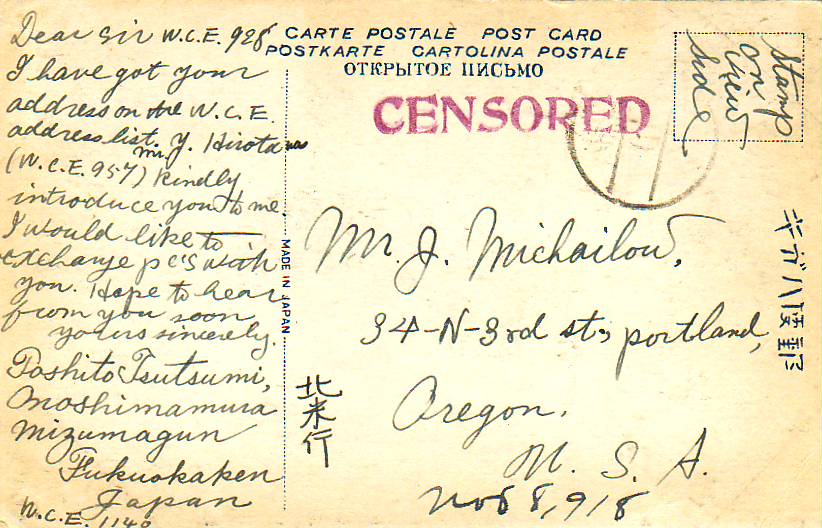 Dear Sir W.C.E. 928
I have got your
address on the W.C.E.
address list. Mr. Y. Hirota was
(W.C.E. 957) kindly
introduce you to me.
I would like to
exchange pc's with
you. Hope to hear
from you soon
yours sincerely.
Toshito Tsutsumi,
Onoshimamura
Mizumagun
Fukuokaken
Japan
W.C.E. 1140
CARTE POSTALE POST CARD
POSTKARTE CARTOLINA POSTALE
ОТКРЫТОЕ ПИСЬМО
CENSORED
Stamp
on
view
side
MADE IN JAPAN
Mr. J. Michailow,
34-N-3rd st., portland,
Oregon.
U. S. A.
Nov 8, 918
北米行